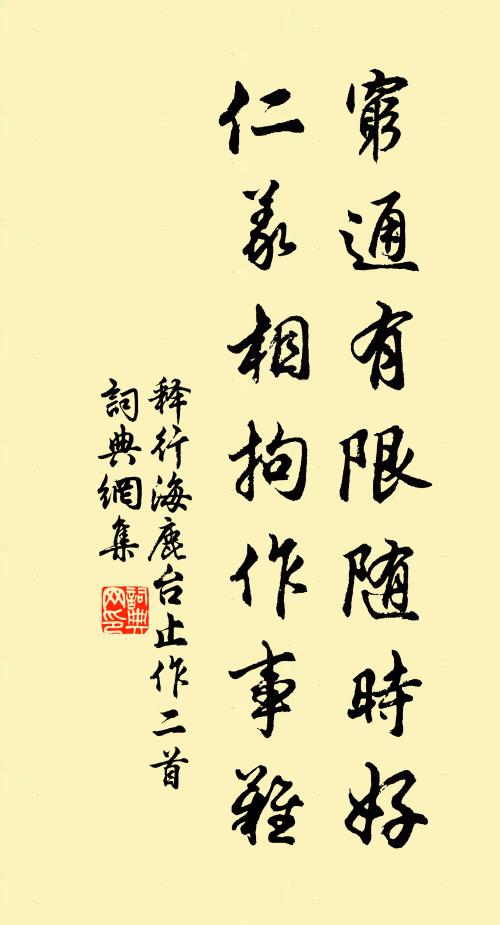 窮通有限随時好
仁義相拘作事難
释行海鹿台止作二首
詞典網集
詞典
网印